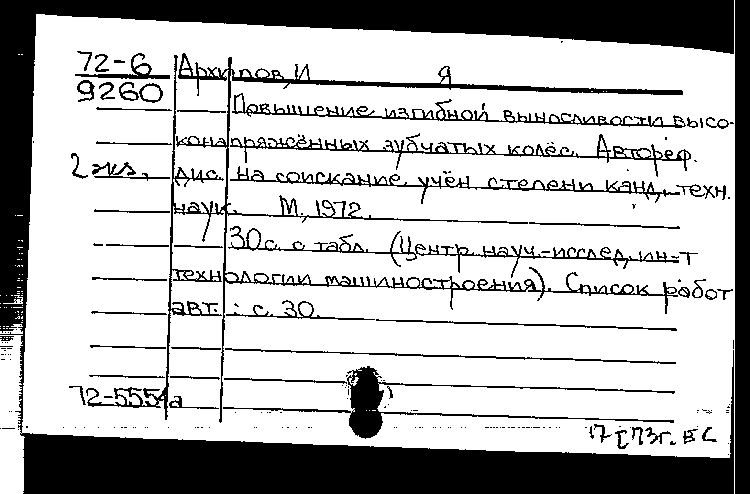 72-6 Архипов, И Я
9260
Повышение изгибной выносливости высо-
конапряжённых зубчатых колёс. Автореф.
2 экз. дис. на соискание учён. степени канд. техн.
наук. М., 1972.
30с. с табл. (Центр. науч.-исслед. ин-т
технологии машиностроения). Список работ
авт.: с. 30.
72-5554а
17 I 73г.